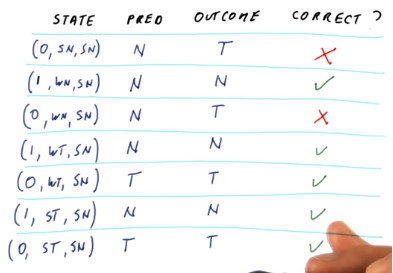 STATE PRED OUTCOME CORRECT ?
(0, SN, SN) N T ✗
(1, WN, SN) N N ✓
(0, WN, SN) N T ✗
(1, WT, SN) N N ✓
(0, WT, SN) T T ✓
(1, ST, SN) N N ✓
(0, ST, SN) T T ✓